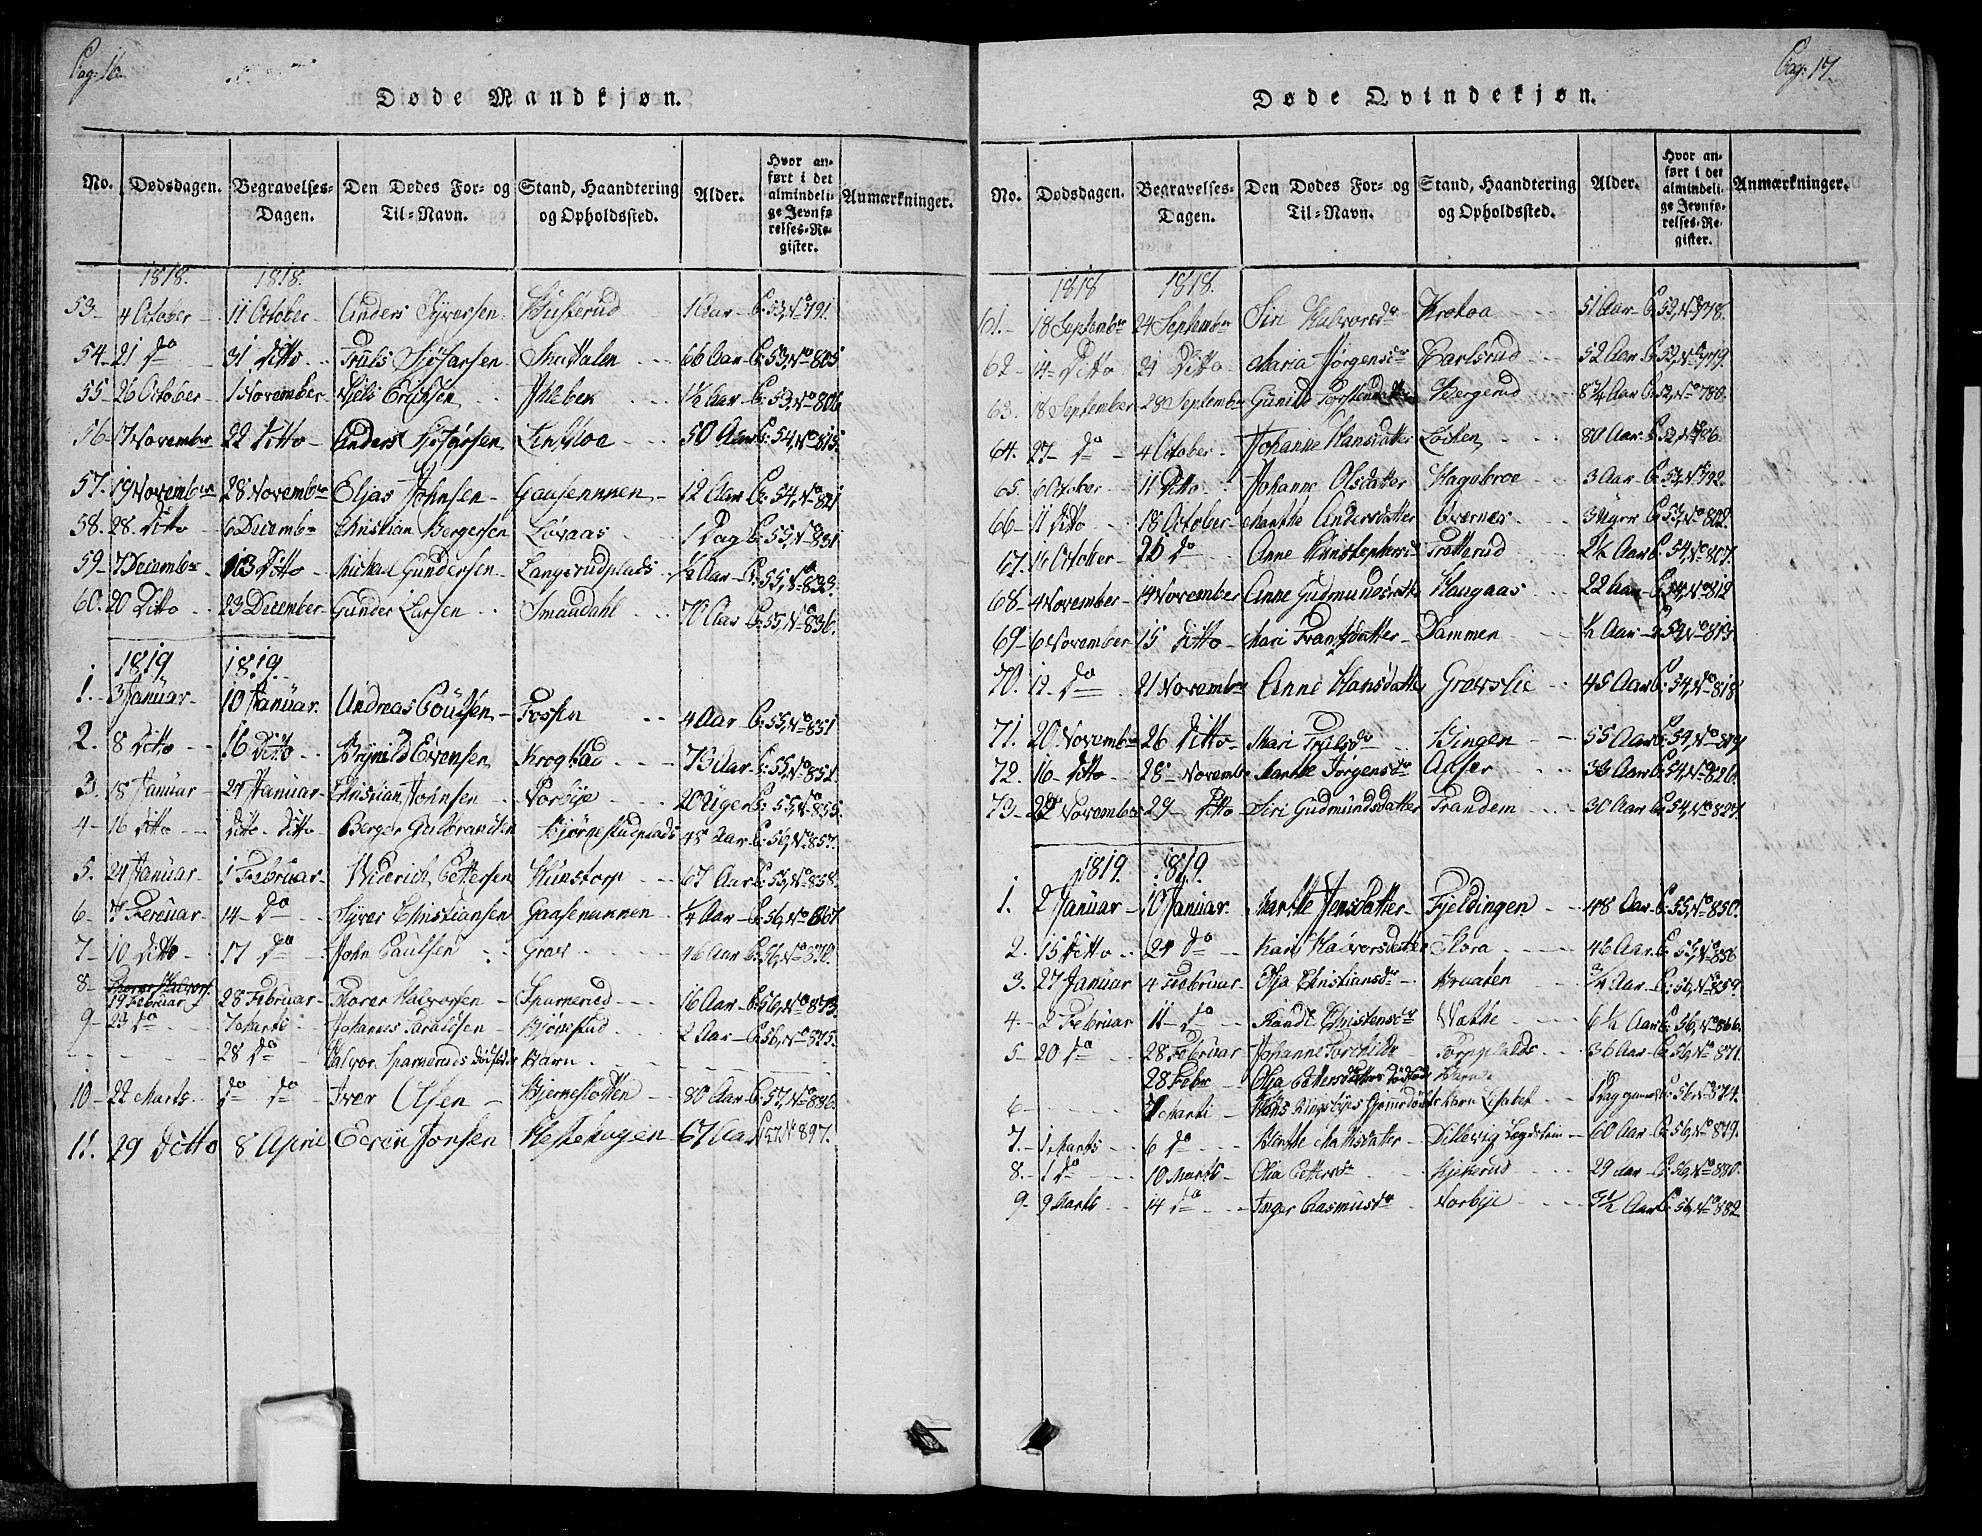 Pag: 16
Døde Mandkjøn.
No. Dødsdagen. Begravelses-Dagen. Den Dødes For- og Til-Navn. Stand, Haandtering og Opholdssted. Alder. Hvor anført i det almindelige Jevnførelses-Register. Anmærkninger.
1818. 1818.
53- 4 October - 11 October - Anders Syversen - 1 Aar - P: 53, No 791.
54- 21 do 31 Ditto - Truls - 66 Aar - P: 53, No 805
55- 26 October - 1 November - Niels Erichsen - 1½ Aar - P: 53, No 806
56- 17 November 22 Ditto - Anders - 50 Aar P: 54, No 815
57- 19 November 28 November - Eljas Johnsen - Gaasenunnen - 12 Aar P: 54, No 821
58- 28 Ditto - 6 Decembr Christian Bergersen Løvaas 1 Dag P: 55, No 831
59- 7 Decembr - 13 Ditto - Michel Gundersen - Langerudplads - ½ Aar - P: 55, No 833.
60. 20 Ditto - 23 December - Gunder Larsen - Smaadahl - 70 Aar P: 55, No 836.
1819 1819.
1. - 3 Januar - 10 Januar. Andreas Poulsen - Fossen - 4 Aar - P: 55, No 851
2. 8 Ditto - 16 Ditto - Brynild Evensen - Krogstad - 73 Aar - P: 55, No 852
3. 18 Januar - 24 Januar - Christian Johnsen - Norbye - 20 Uger P: 55, No 855.
4 - 16 Ditto - Ditto Ditto Berger Gulbrandsen Bjørnestadplads 48 Aar P: 56, No 857.
5. 24 Januar - 1 Februar - Diderich Pettersen Hunstorp - 67 Aar P: 55, No 858.
6 - 7 Februar - 14 - do - Syver Christiansen Gaasenunnen - ¼ Aar - P: 56, No 867
7 - 10 Ditto - 17 do - John Paulsen - Grav - 46 Aar P: 56, No 870.
8 - 19 Februar 28 Februar - Thorer Halvorsen - Sparnerud - 16 Aar - P: 56, No 873.
9 - 23 do - 7 Marts - Johannes - Bjørnstad - 2 Aar - P: 56, No 875.
28 do - Halvor Sparneruds Dødfødte Barn -
10 - 22 Marts - do do - Iver Olsen - 80 Aar - P: 57, No 886.
11. 29 Ditto 8 April Even Jonsen Hestehagen 67 Aar P 57 No 897.
Pag: 17
Døde Qvindekjøn.
No. Dødsdagen. Begravelses-Dagen. Den Dødes For- og Til-Navn. Stand, Haandtering og Opholdssted. Alder. Hvor anført i det almindelige Jevnførelses-Register. Anmærkninger.
1818 1818.
61. - 18 Septembr 24 Septembr Siri Halvorsdr Krokoa - 51 Aar - P: 52, No 778.
62 - 14 Ditto 21 Ditto - Maria Jørgensdr Carlsrud - 52 Aar - P: 52, No 779.
63. - 18 September - 28 Septembr Gunild Torstensdatter Bergerud - 8¾ Aar P: 52, No 780.
64. 27 - do - 4 October - Johanne Hansdatter Løchen - 80 Aar - P: 52, No 786.
65. 6 October - 11 Ditto - Johanne Olsdatter Hagebroe - 3 Aar - P: 53, No 792.
66 - 11 Ditto - 18 October - Marthe Andersdatter - 3 Uger P: 53, No 802.
67. 16 October 25 do - Anne Christophersdr Tratterud - 2½ Aar P: 54, No 807.
68 - 4 November - 14 November Anne Gudmundsdtr Haugaas - 22 Aar P: 54, No 812
69 - 6 November - 15 Ditto - Mari Frantsdatter - Dammen - ½ Aar - P: 54, No 813
70. 12 - do - 21 Novembr Anne Hansdatter Grøvslie - 45 Aar P: 54, No 818
71. 20 Novembr 26 Ditto - Mari Trulsdr - Bingen - 55 Aar P: 54, No 819
72. 16 - Ditto - 28 - Novembr Marthe Jørgensdr Aaser - 33 Aar P: 54, No 826.
73 - 22 Novembr 29 - Ditto Siri Gudmundsdatter Trandem - 30 Aar P: 54, No 827.
1819. 1819.
1. 2 Januar - 10 Januar. Marthe Jensdatter - Fjeldingen - 48 Aar P: 55, No 850.
2. 15 Ditto - 24 do - Kari Halvorsdatter Flora - 46 Aar P: 55, No 856
3. 27 Januar 4 Februar. Olja Christiansdr - Braaten - ¾ Aar P: 56, No 859.
4. - 2 Februar 11 - do - Randi Christensdr - 6½ Aar P: 56, No 866.
5 - 20 do - 28 Februar Johanne Torchildr Torpplads - 36 Aar P: 56, No 871.
28 Febr - Olja Pettersdatters Dødfødte Barn
6 - 7 Marts - Barn Lisabet - 1 Dag P: 56, No 874.
7. - 1 Marts - 6 do - Marthe Mathisdatter - Dillevig - 60 Aar - P: 56, No 879.
8. - 1 do - 10 Marts - Olia Pettersdr - Kjekerud - 29 Aar - P: 56, No 880.
9 - 9 Marts - 14 do - Inger Rasmusdr Norbye - 5½ Aar P: 56, No 882